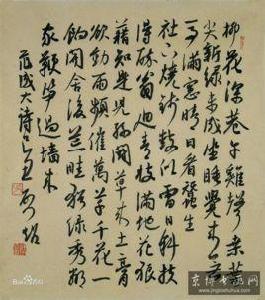 柳花深巷午雞聲桑葉
尖新綠未成坐睡覺來無
一事滿窗晴日看蠶生
社下燒錢鼓似雷日斜扶
得醉翁回青枝滿地花狼
藉知是兒孫鬥草來土膏
欲動雨頻催萬草千花一
餉開舍後荒畦猶綠秀鄰
家鞭筍過牆來
范成大詩
Bai百科